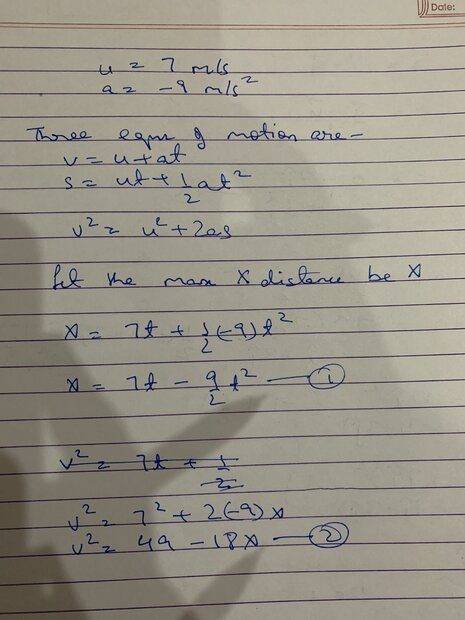 Date:
u = 7 m/s
a = -9 m/s²
Three eqns of motion are -
v = u + at
s = ut + 1/2 at²
v² = u² + 2as
Let the max X distance be x
x = 7t + 1/2 (-9) t²
x = 7t - 9/2 t² — ①
v² = 7t + 1/2
v² = 7² + 2(-9)x
v² = 49 - 18x — ②